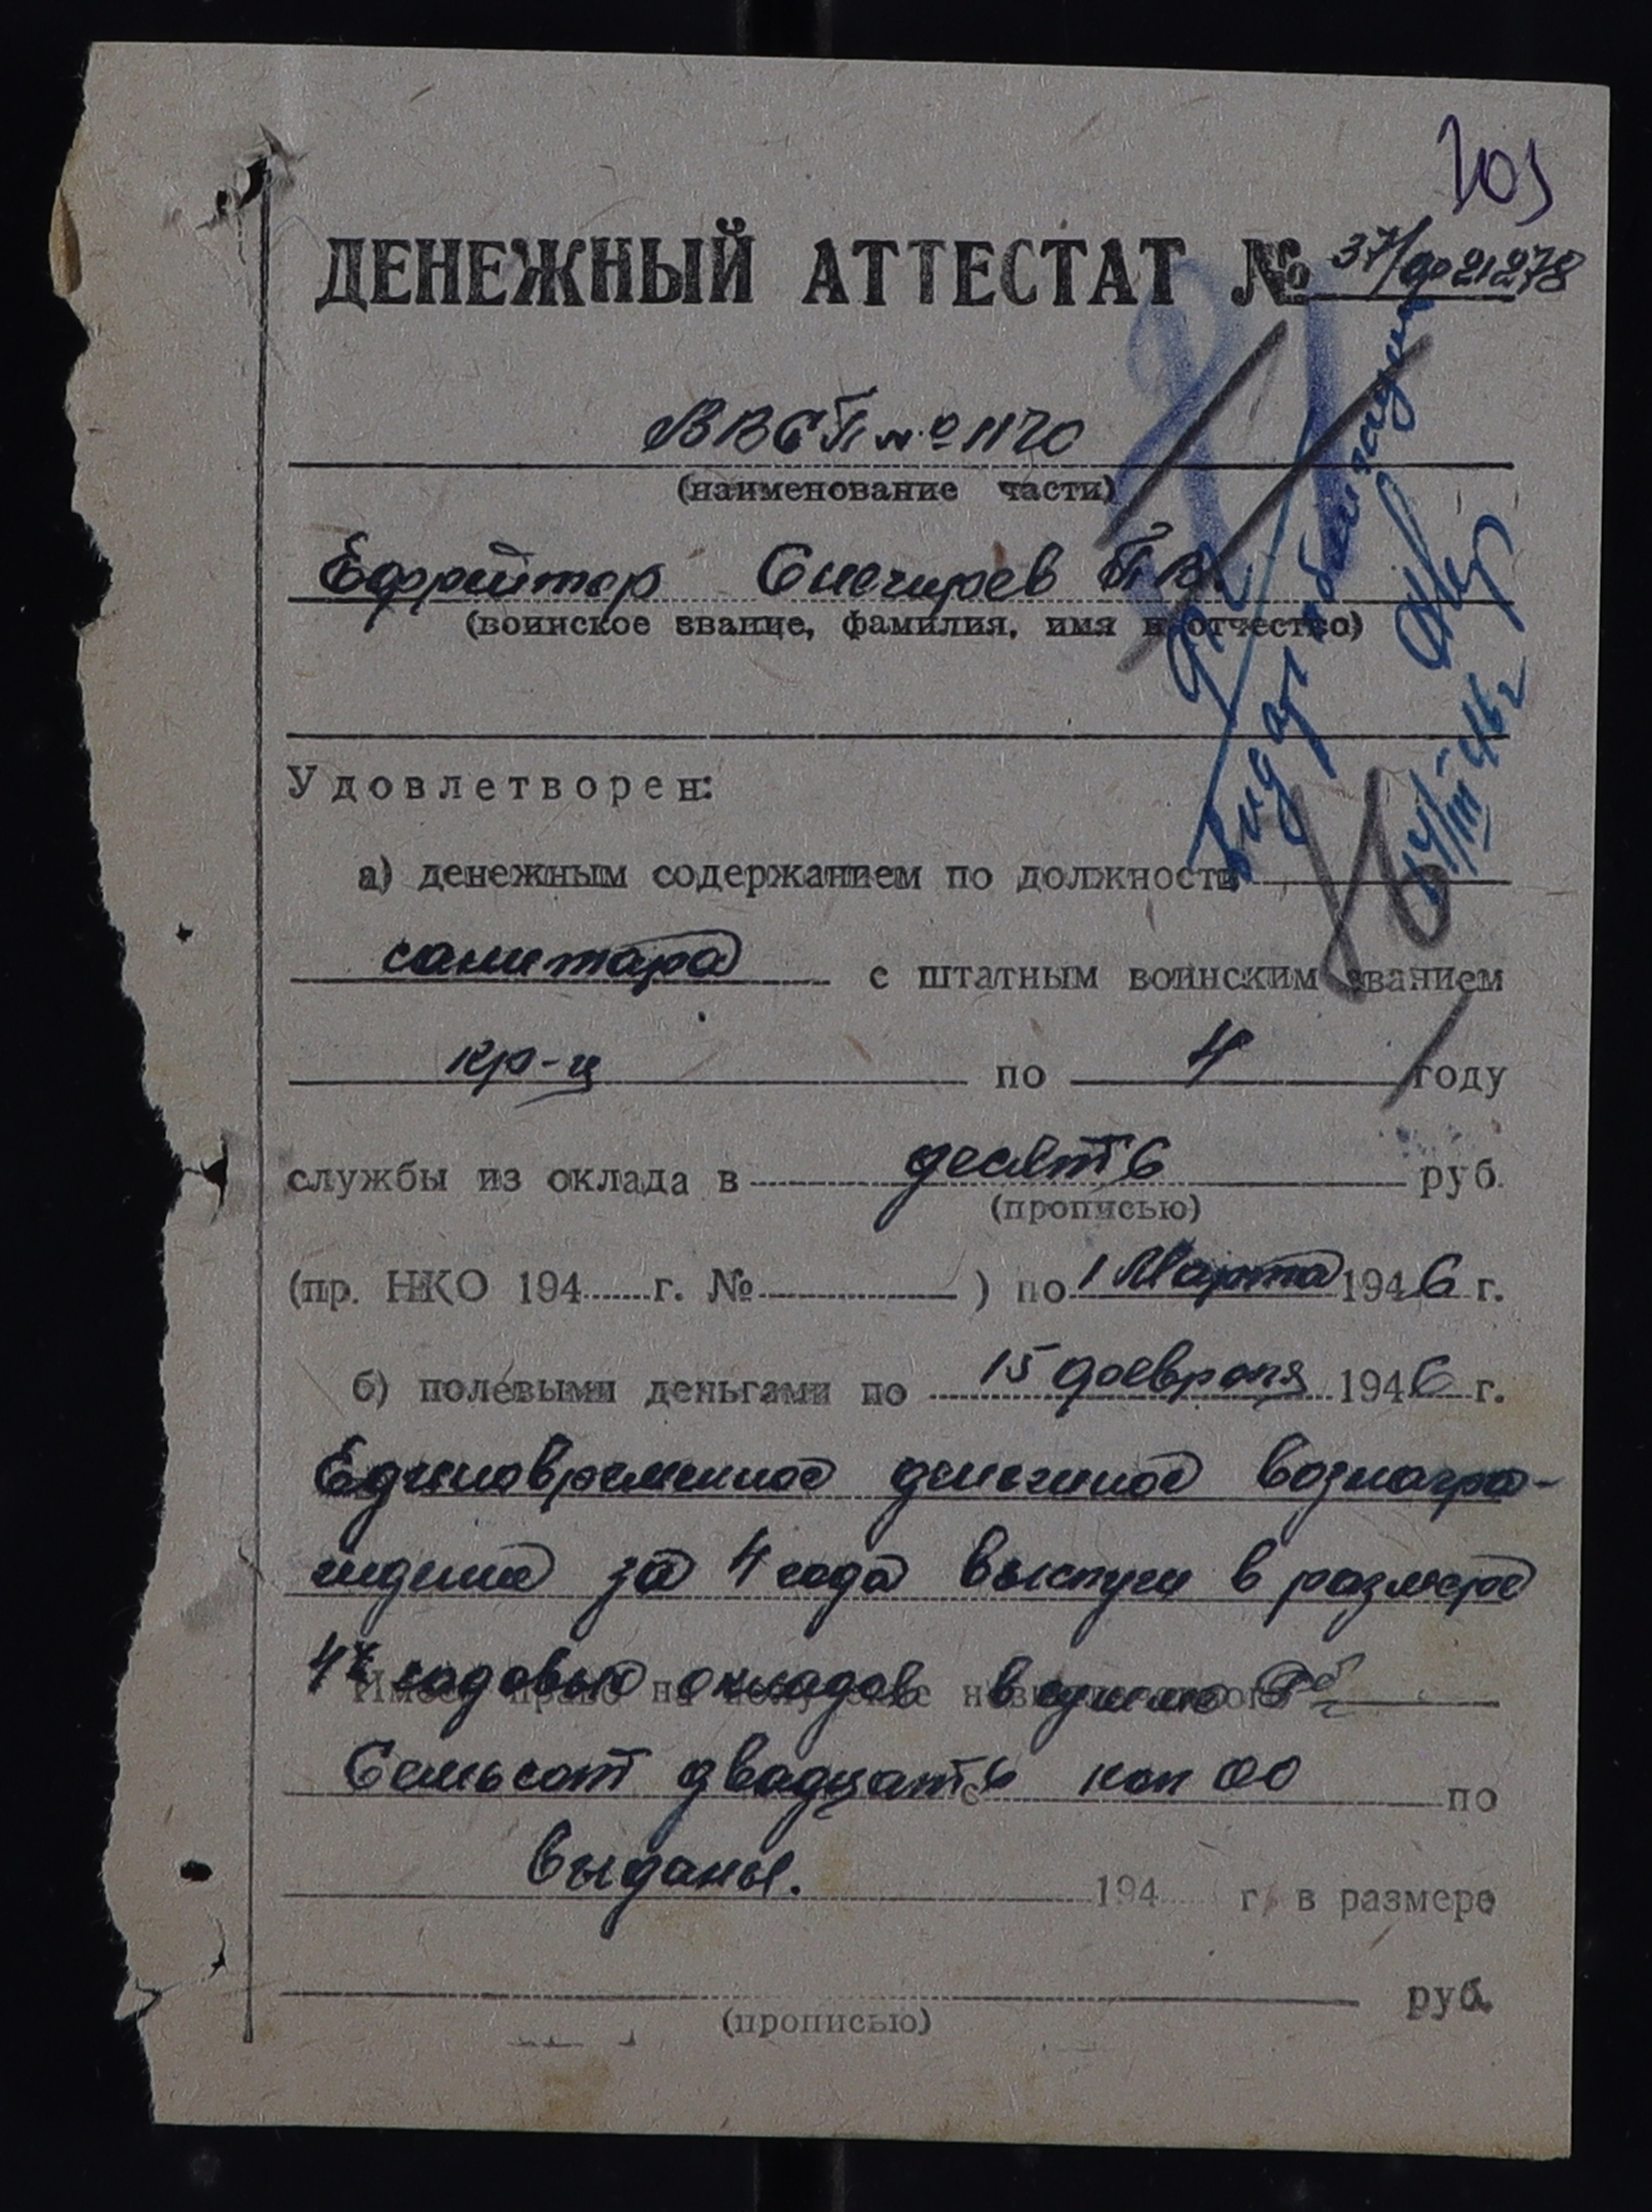 103
ДЕНЕЖНЫЙ АТТЕСТАТ № 37/ф 21278
ВВСП № 1170
(наименование части)
Ефрейтор Снегирев П В.
(воинское звание, фамилия, имя и отчество)
14/III-46 г
Удовлетворен:
а) денежным содержанием по должности
санитара с штатным воинским званием
кр-ц по 4 году
службы из оклада в десять руб.
(прописью)
(пр. НКО 194 г. № ) по 1 Марта 1946 г.
б) полевыми деньгами по 15 февраля 1946 г.
Единовременное денежное вознагра-
ждение за 4 года выслуги в размере
4х годовых окладов в сумме
Семьсот двадцать коп 00 по
выданы. 194 г. в размере
руб.
(прописью)